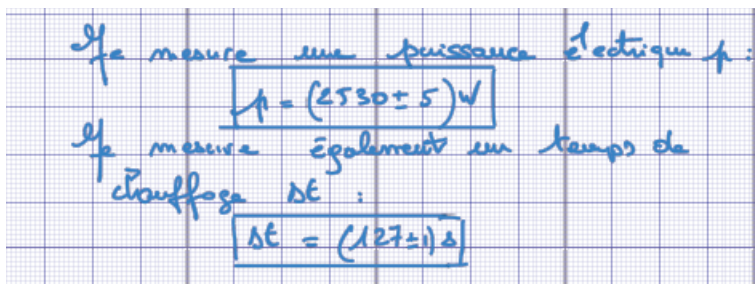 Je mesure une puissance électrique p :
p = (2530 ± 5) W
Je mesure également un temps de
chauffage Δt :
Δt = (127 ± 1) s